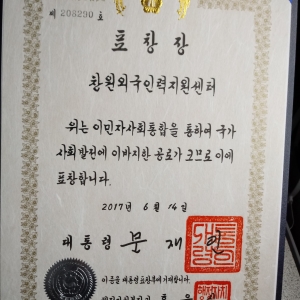 제 208290 호
표 창 장
창원외국인력지원센터
위는 이민자사회통합을 통하여 국가
사회발전에 이바지한 공로가 크므로 이에
표창합니다.
2017년 6월 14일
대통령 문재인
이 증을 대통령표창부에 기재합니다.